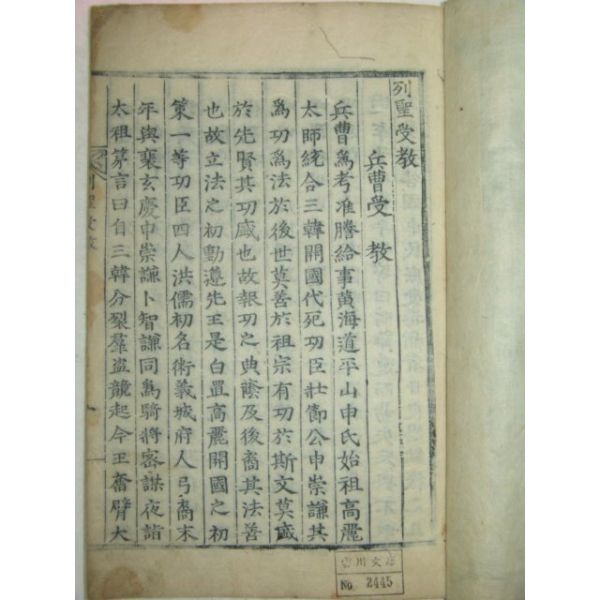 列聖受教
兵曹受教
兵曹爲考准謄給事黃海道平山申氏始祖高麗
太師統合三韓開國代死功臣壯節公申崇謙其
爲功爲法於後世莫善於祖宗有功於斯文莫盛
於先賢其功盛也故報功之典蔭及後裔其法善
也故立法之初動遵先王是白置高麗開國之初
策一等功臣四人洪儒初名術義城府人弓裔末
年與裵玄慶申崇謙卜智謙同爲騎將密謀夜詣
太祖第言曰自三韓分裂羣盜競起今王奮臂大
列聖受教
No 2445